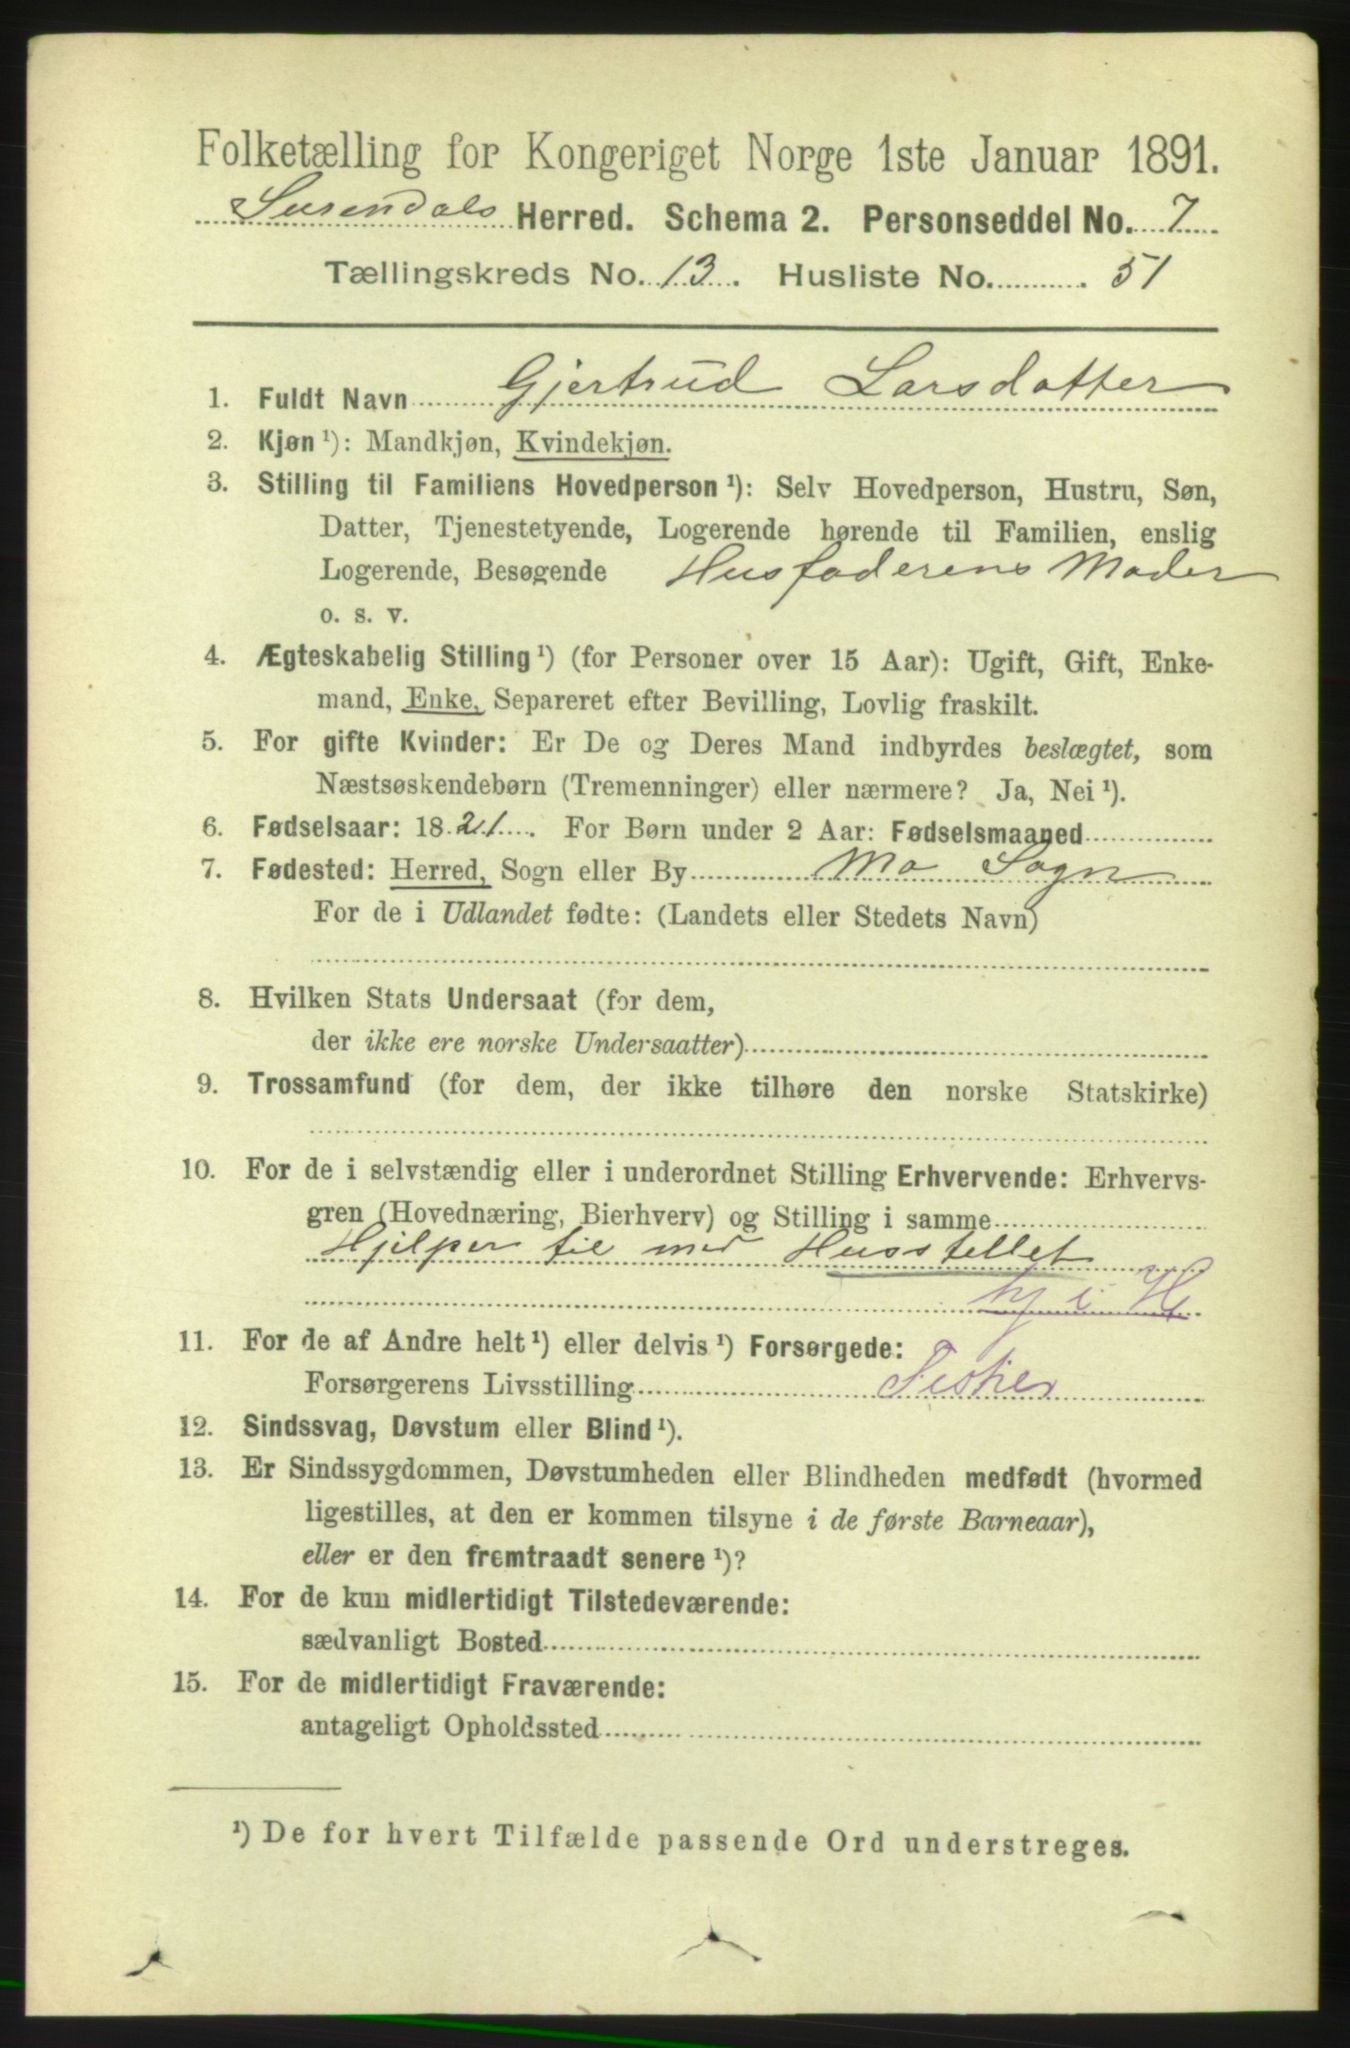 Folketælling for Kongeriget Norge 1ste Januar 1891.
Surendals Herred. Schema 2. Personseddel No. 7
Tællingskreds No. 13. Husliste No. 51
1. Fuldt Navn Gjertrud Larsdatter
2. Kjøn ¹): Mandkjøn, Kvindekjøn.
3. Stilling til Familiens Hovedperson ¹): Selv Hovedperson, Hustru, Søn,
Datter, Tjenestetyende, Logerende hørende til Familien, enslig
Logerende, Besøgende Husfaderens Moder
o. s. v.
4. Ægteskabelig Stilling ¹) (for Personer over 15 Aar): Ugift, Gift, Enke-
mand, Enke, Separeret efter Bevilling, Lovlig fraskilt.
5. For gifte Kvinder: Er De og Deres Mand indbyrdes beslægtet, som
Næstsøskendebørn (Tremenninger) eller nærmere? Ja, Nei ¹).
6. Fødselsaar: 1821. For Børn under 2 Aar: Fødselsmaaned
7. Fødested: Herred, Sogn eller By Mo Sogn
For de i Udlandet fødte: (Landets eller Stedets Navn)
8. Hvilken Stats Undersaat (for dem,
der ikke ere norske Undersaatter)
9. Trossamfund (for dem, der ikke tilhøre den norske Statskirke)
10. For de i selvstændig eller i underordnet Stilling Erhvervende: Erhvervs-
gren (Hovednæring, Bierhverv) og Stilling i samme
Hjelper til med Husstellet
hj i H
11. For de af Andre helt ¹) eller delvis ¹) Forsørgede:
Forsørgerens Livsstilling
12. Sindssvag, Døvstum eller Blind ¹).
13. Er Sindssygdommen, Døvstumheden eller Blindheden medfødt (hvormed
ligestilles, at den er kommen tilsyne i de første Barneaar),
eller er den fremtraadt senere ¹)?
14. For de kun midlertidigt Tilstedeværende:
sædvanligt Bosted
15. For de midlertidigt Fraværende:
antageligt Opholdssted
¹) De for hvert Tilfælde passende Ord understreges.